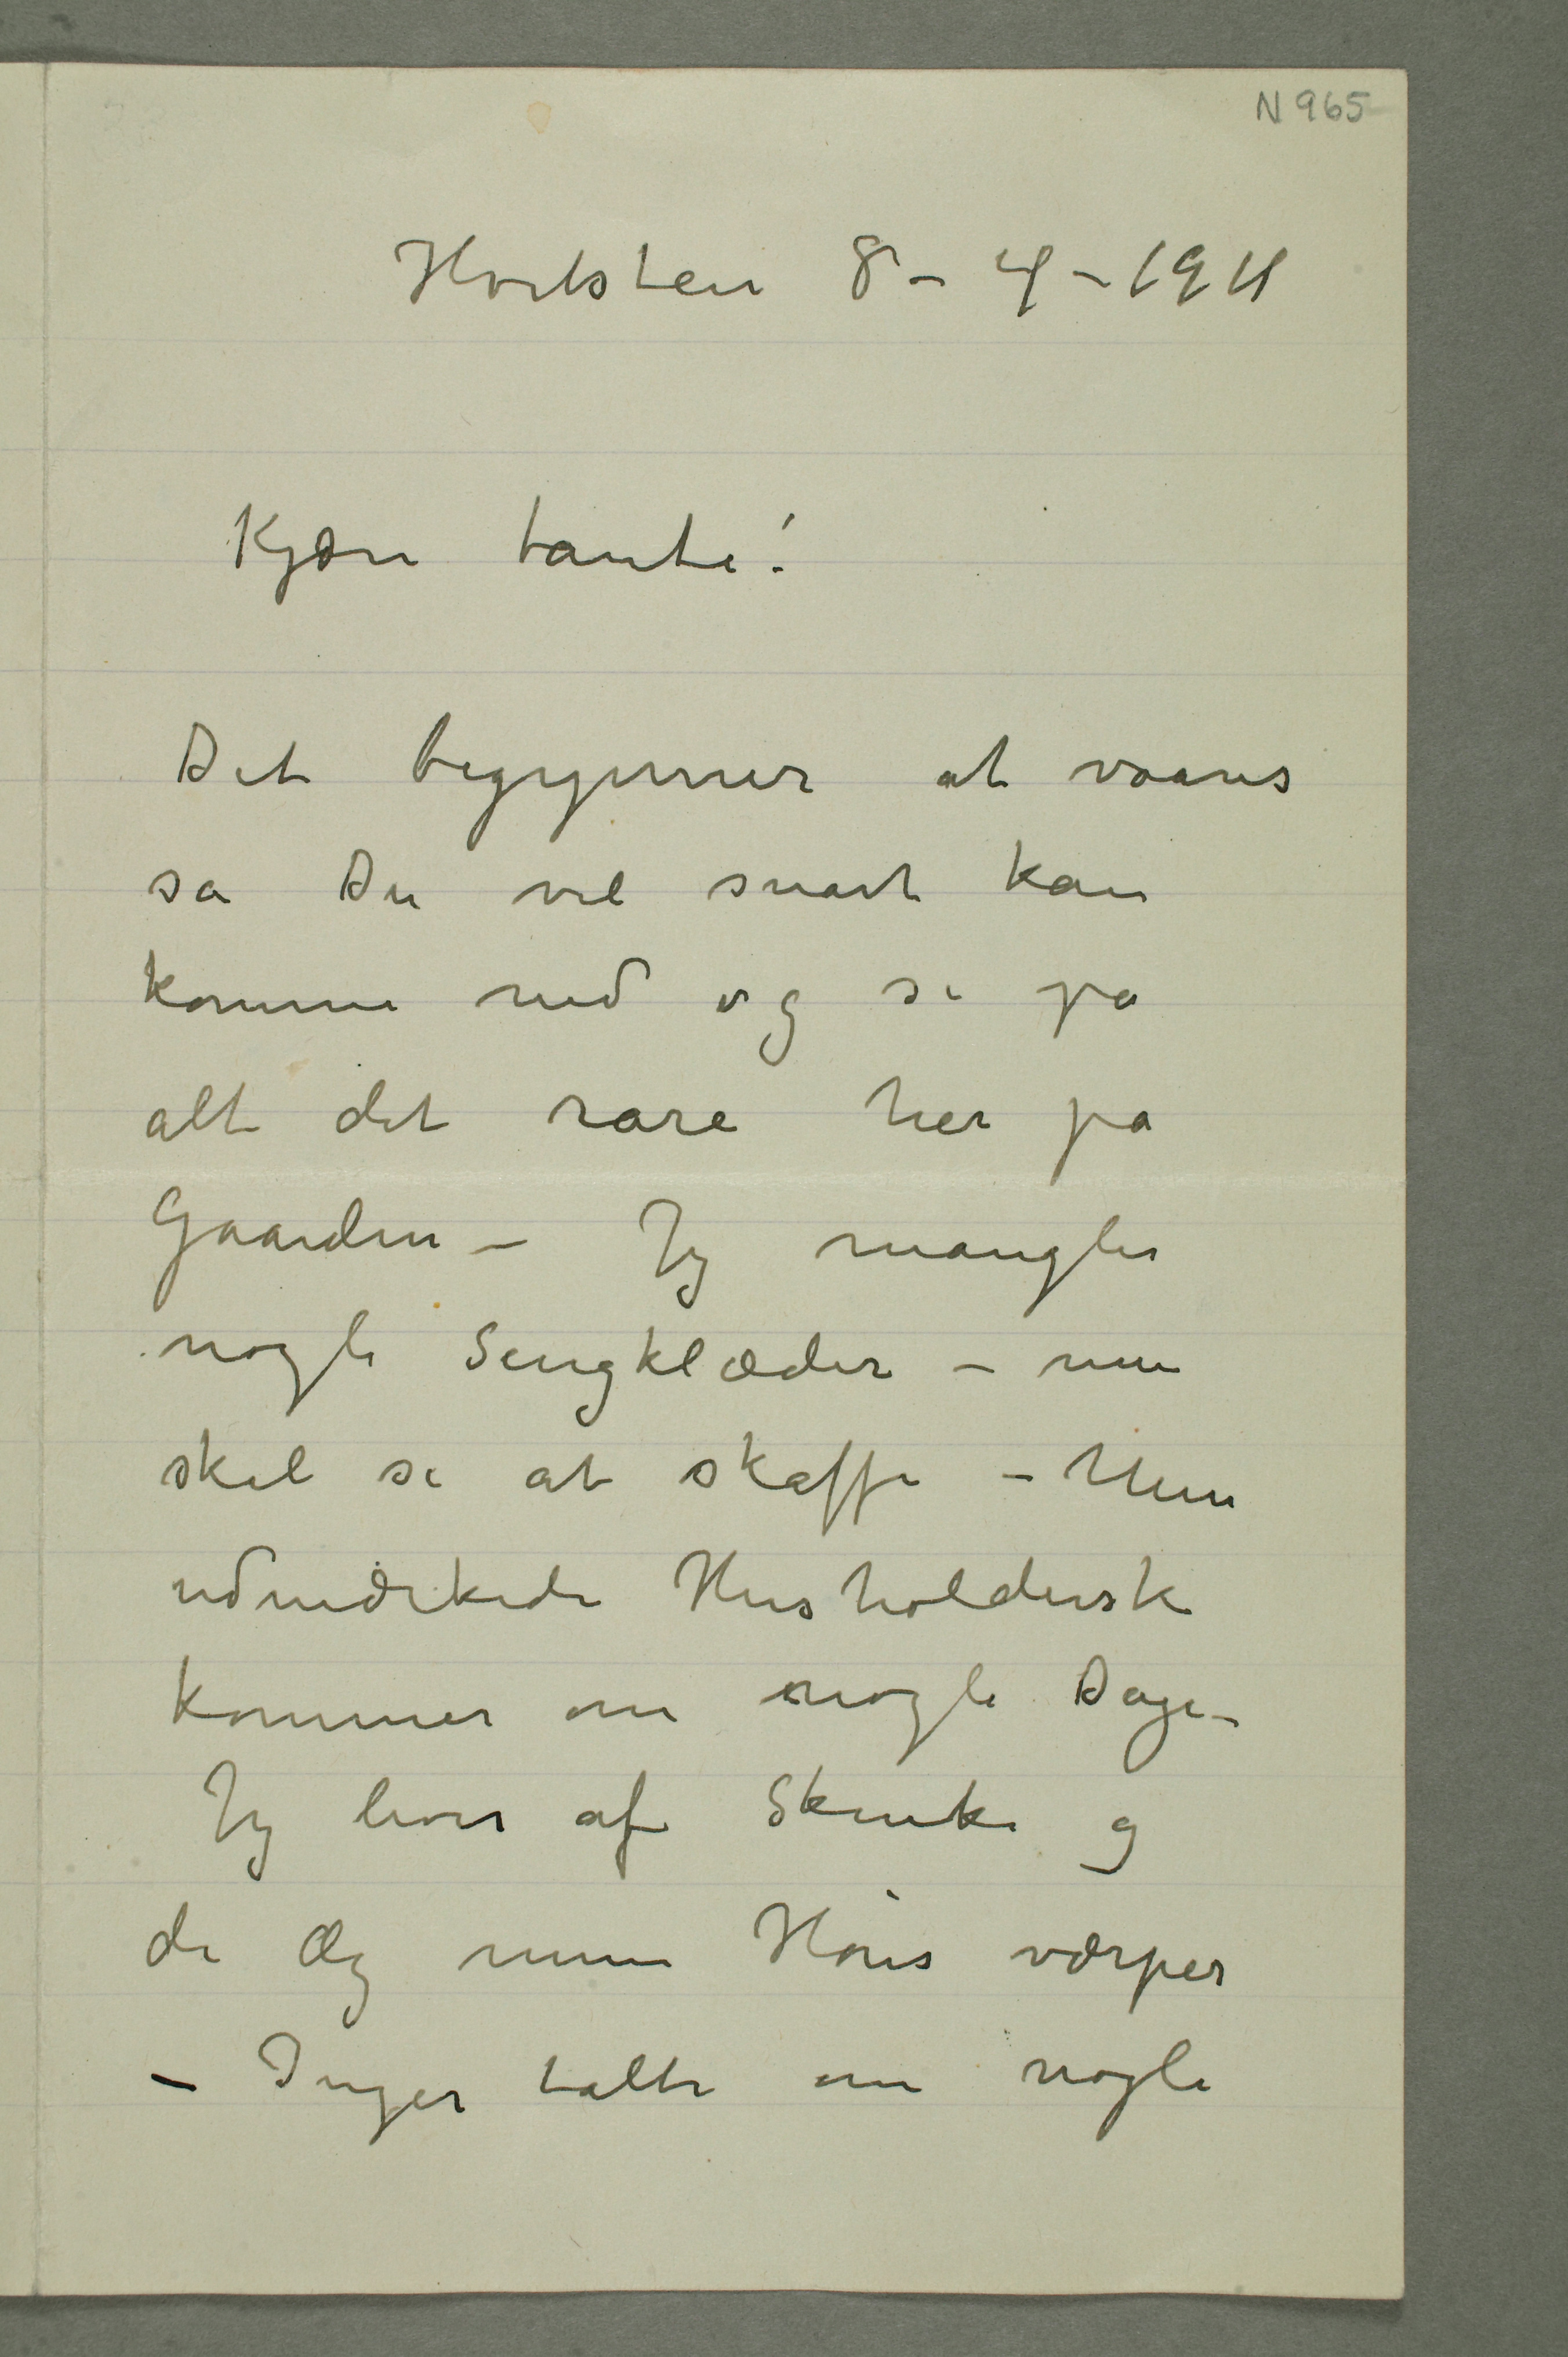 N 965
Hvitsten 8–4–1911
Kjære tante!
Det begynner at vaares
så Du vel snart kan
komme ned og se på
alt det rare her på
Gaarden – Jeg mangler
nogle Sengklæder – men
skal se at skaffe – Min
udmærkede Husholdersk
kommer om nogle Dage –
Jeg lever af Skinke og
de Æg mine Høns værper
– Inger talte om nogle